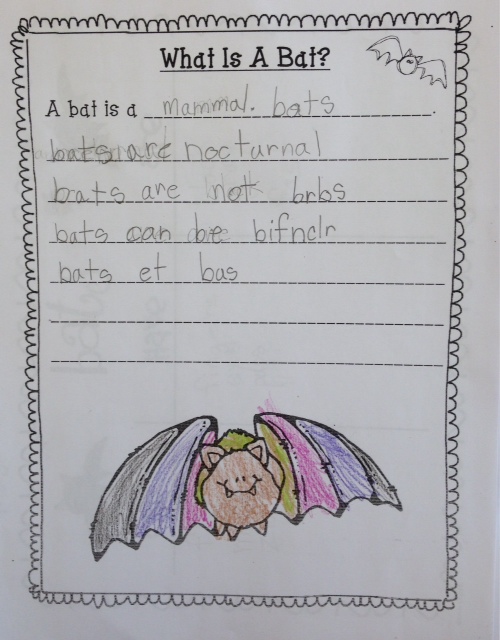 What Is A Bat?
A bat is a mammal. bats.
bats are nocturnal
bats are not brbs
bats can be bifnclr
bats et bas